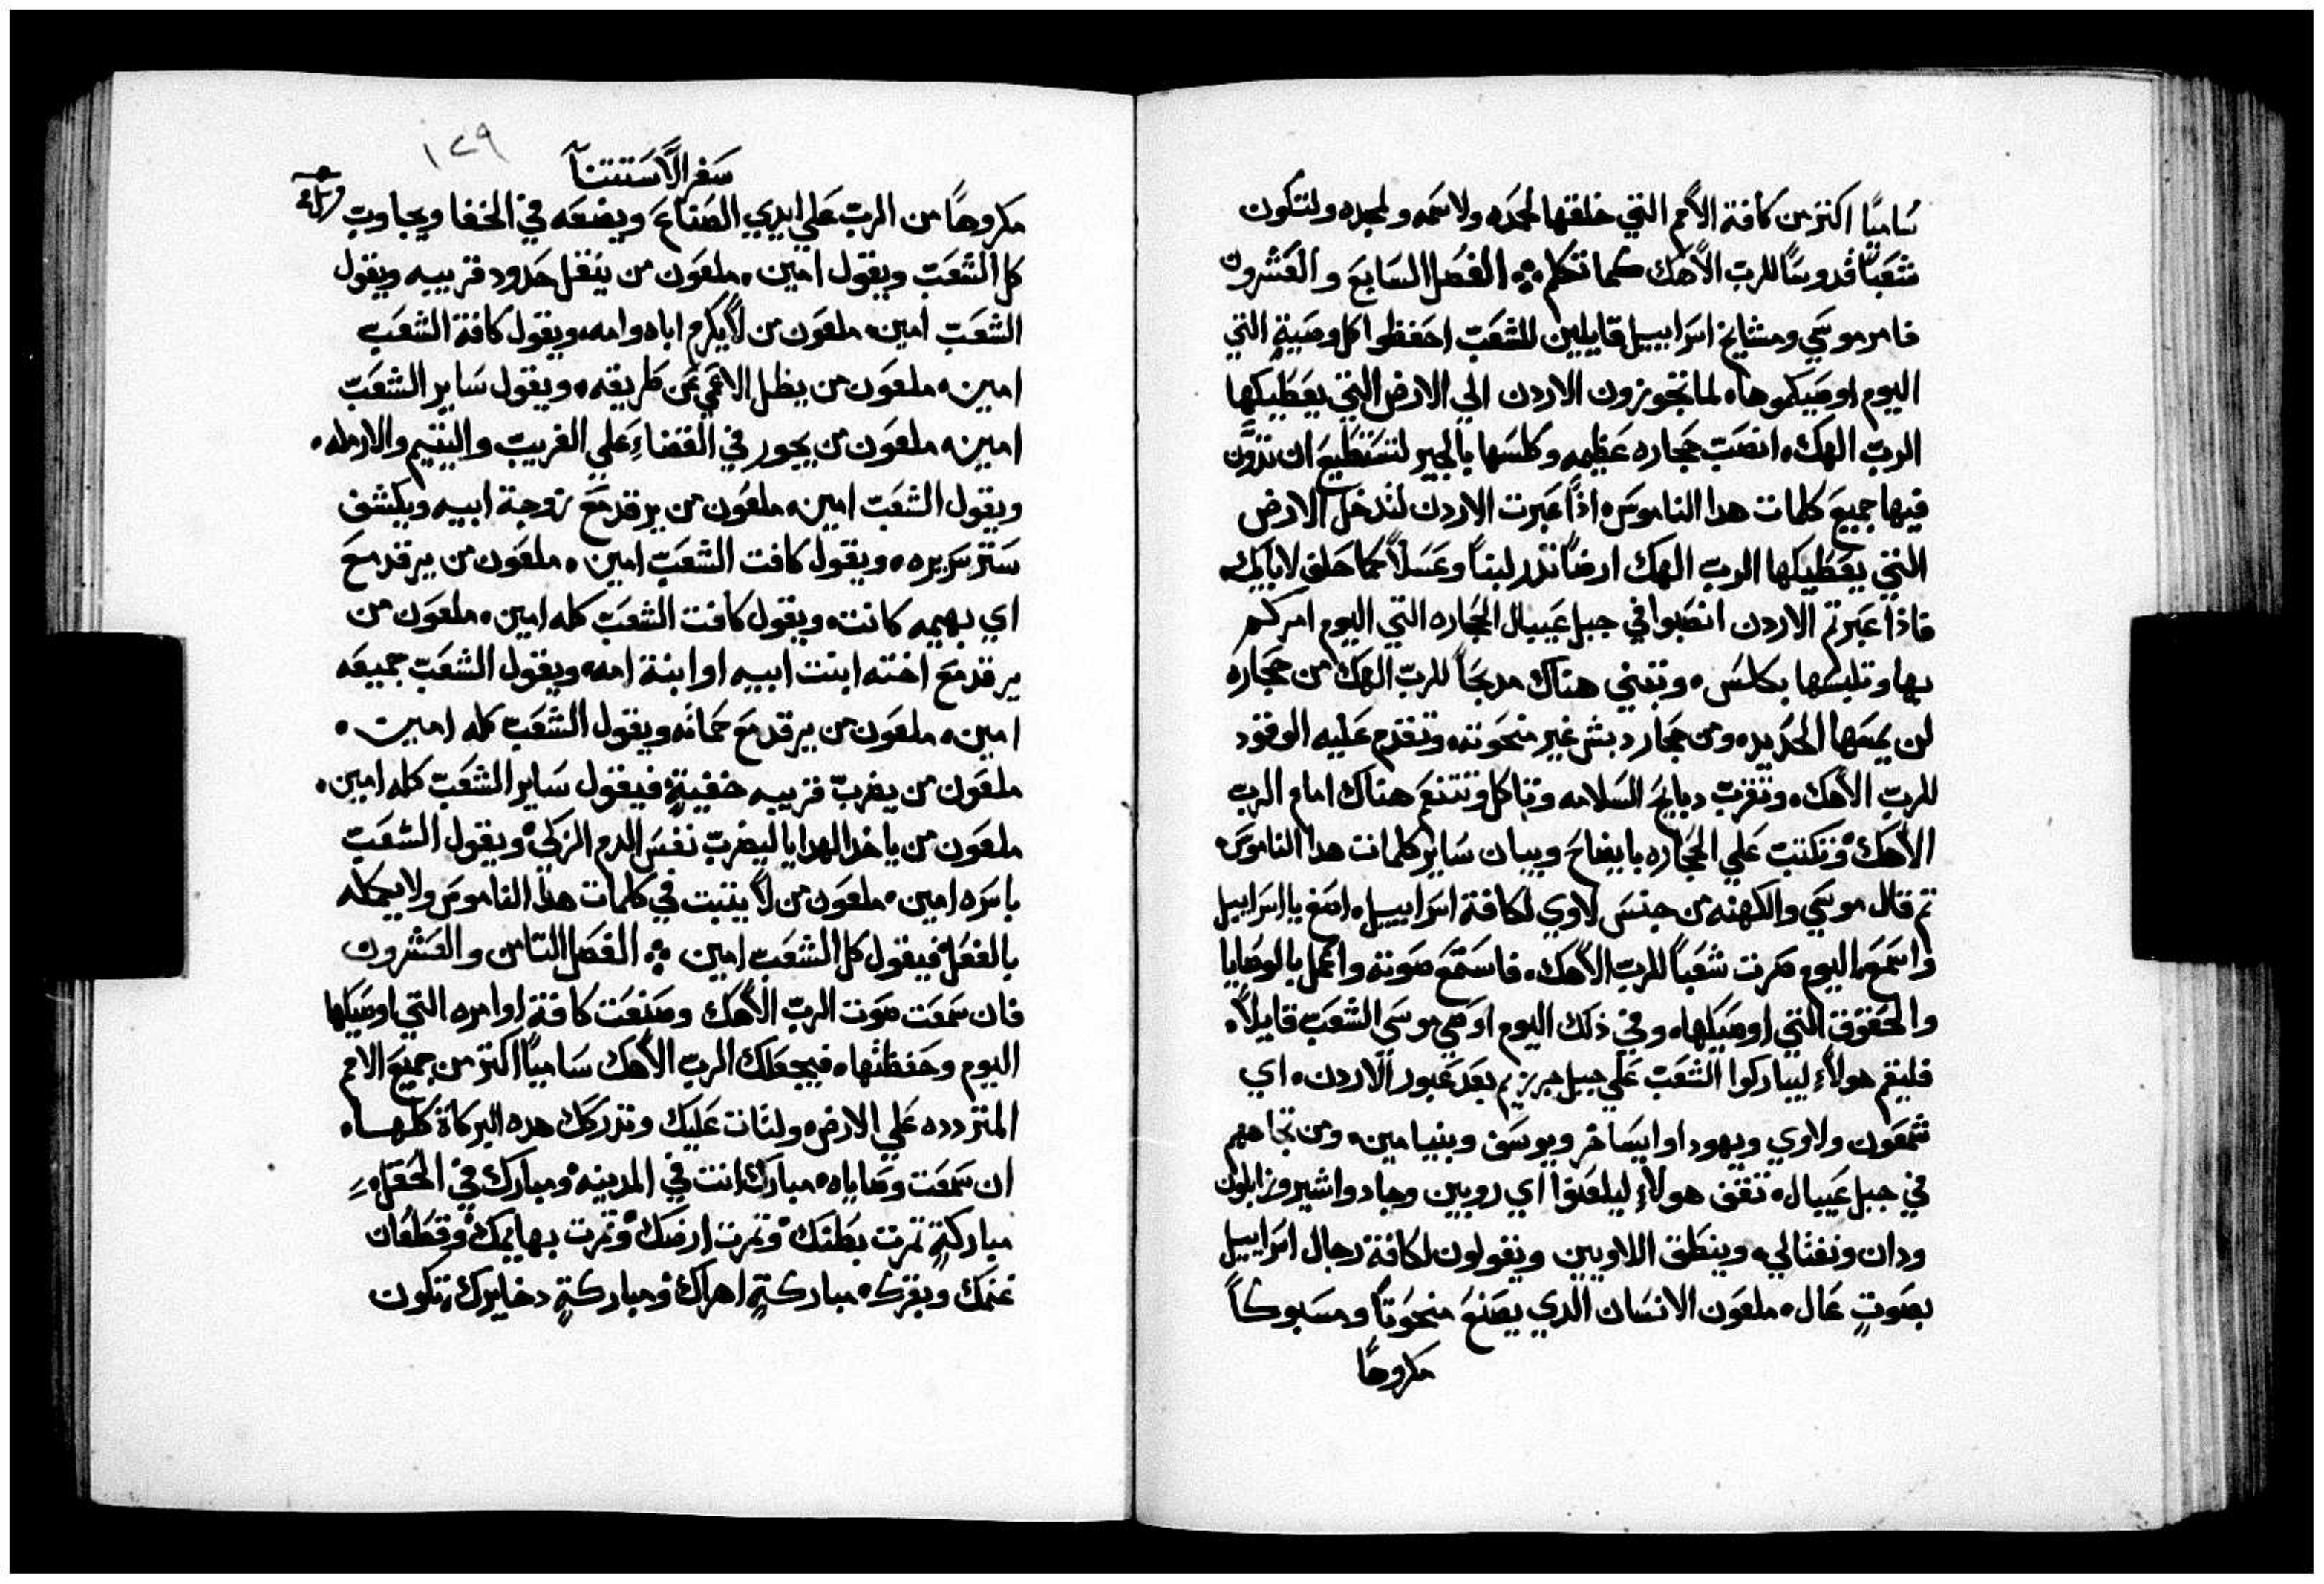 ساميًا اكتر من كافة الأمم التي خلقها لحمده ولاسمه ولمجده ولتكون
شعبًا قدوسًا للرب الاهك كما تكلم ۞ الفصل السابع والعشرون
فامر موسي ومشايخ اسراييل قايلين للشعب احفظوا كل وصيةٍ التي
اليوم اوصيكموها، لما تجوزون الاردن الي الارض التي يعطيكها
الرب الهك، انصب حجاره عظيمه وكلسها بالجير لتستطيع ان تدوّن
فيها جميع كلمات هدا الناموس، اذا عبرت الاردن لتدخل الارض
التي يعطيكها الرب الهك ارضًا تدر لبنًا وعسلًا كما حلف لابايك،
فاذا عبرتم الاردن انصبوا في جبل عيبال الحجاره التي اليوم امركم
بها وتلبسها بكلس، وتبني هناك مدبحًا للرب الهك من حجاره
لن يمسها الحديد، ومن حجار دبش غير منحوته، وتقدم عليه الوقود
للرب الاهك، وتقرب دبايح السلامه وتاكل وتتنعم هناك امام الرب
الاهك، وتكتب علي الحجاره بايضاح وبيان ساير كلمات هدا الناموس،
تم قال موسي والكهنه من جنس لاوي لكافة اسراييل، اصغ يا اسراييل
واسمع، اليوم صرت شعبًا للرب الاهك، فاستمع صوته واعمل بالوصايا
والحقوق التي اوصيكها، وفي ذلك اليوم اوصي موسي الشعب قايلًا،
فليقم هولاءِ ليباركوا الشعب علي جبل جريزيم بعد عبور الاردن، اي
شمعون ولاوي ويهودا وايساخر ويوسف وبنيامين، ومن تجاههم
في جبل عيبال، تقف هولاءِ ليلعنوا اي روبين وجاد واشير وزابلون
ودان ونفتالي، وينطق اللاويين ويقولون لكافة رجال اسراييل
بصوتٍ عال، ملعون الانسان الدي يصنع منحوتًا ومسبوكًا
مكروهًا
سفر الاستتنا
١٢٩
مكروهًا من الرب علي ايدي الصناع ويضعه في الخفا ويجاوب
كل الشعب ويقول امين، ملعون من ينقل حدود قريبيه ويقول
الشعب امين، ملعون من لا يكرم اباه وامه، ويقول كافة الشعب
امين، ملعون من يظل الاعمي عن طريقه، ويقول ساير الشعب
امين، ملعون من يجور في القضاءِ علي الغريب واليتيم والارمله،
ويقول الشعب امين، ملعون من يرقد مع زوجة ابيه ويكشف
ستر سريره، ويقول كافت الشعب امين، ملعون من يرقد مع
اي بهيمه كانت، ويقول كافت الشعب كله امين، ملعون من
يرقد مع اخته ابنت ابيه او ابنة امه، ويقول الشعب جميعه
امين، ملعون من يرقد مع حماته ويقول الشعب كله امين،
ملعون من يضرب قريبه خفيةٍ فيقول ساير الشعب كله امين،
ملعون من ياخد الهدايا ليضرب نفس الدم الزكي، ويقول الشعب
باسره امين، ملعون من لا يتبت في كلمات هدا الناموس ولا يكمله
بالفعل فيقول كل الشعب امين ۞ الفصل التامن والعشرون
فان سمعت صوت الرب الاهك وصنعت كافة اوامره التي اوصيكها
اليوم وحفظتها، فيجعلك الرب الاهك ساميًا اكتر من جميع الامم
المتردده علي الارض، ولتات عليك وتدركك هده البركاة كلها،
ان سمعت وصاياه، مبارك انت في المدينه، ومبارك في الحقل،
مباركةٍ تمرت بطنك، وتمرت ارضك، وتمرت بهايمك، وقطعان
غنمك وبقرك، مباركةٍ اهراك، ومباركةٍ دخايرك، تكون